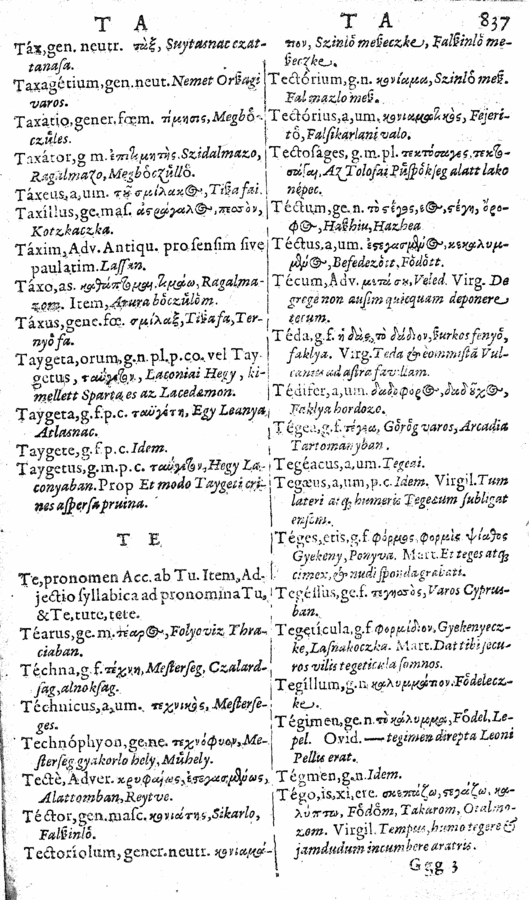 T A
Táx, gen. neutr. τὰξ, Suytasnac czat-
tanasa.
Taxagétium, gen. neut. Nemet Orſzagi
varos.
Taxatio, gener. fœm. τίμησις, Megbô-
czûles.
Taxátor, g m. ἐπιτιμητὴς. Szidalmazo,
Ragalmazo, Megbôczûllô.
Táxeus, a, um. τῦ σμίλακ@, Tiſzafai.
Taxillus, ge. maſ. ἀςράγαλ@, πεσσὸν,
Kotzkaczka.
Táxim, Adv. Antiqu. pro ſenſim ſive
paulatim. Laſſan.
Táxo, as. Ragalma-
zom. Item, Arura bôczûlôm.
Táxus, gene. fœ. σμίλαξ, Tiſzafa, Ter-
nyô fa.
Taygeta, orum, g. n. pl. p. co. vel Tay
getus, ταΰγετον, Laconiai Hegy, ki-
mellett Sparta es az Lacedæmon.
Taygeta, g. f. p. c. ταϋγέτη, Egy Leanya
Atlasnac.
Taygete, g. f. p. c. Idem.
Taygetus, g. m. p. c. ταΰγετον, Hegy La-
conyaban. Prop Et modo Taygeti cri-
nes aſperſa pruina.
T E
Te, pronomen Acc. ab Tu. Item, Ad-
jectio ſyllabica ad pronomina Tu,
& Te, tute, tete.
Téarus, ge. m. τέαρ@, Folyoviz Thra-
ciaban.
Téchna, g. f. τέχνη, Meſterſeg, Czalard-
ſag, alnokſag.
Téchnicus, a, um. τεχνικὸς, Meſterſe-
ges.
Technóphyon, ge. ne. τεχνόφυον, Me-
ſterſeg gyakorlo hely, Mûhely.
Tectè, Adver. κρυφαίως,
Alattomban, Reytve.
Téctor, gen. maſc. κονιάτης, Sikarlo,
Falſzinlô.
Tectoriolum, gener. neutr. κονιαμά-
T A 837
τιον, Szinlô meſzeczke, Falſzinlô me-
ſzeczke.
Tectórium, g. n. κονίαμα, Szinlô meſz.
Fal mazlo meſz.
Tectórius, a, um, κονιαματικὸς, Fejeri-
tô, Falſikarlani valo.
Tectoſages, g. m. pl. τεκτόσαγες, τεκτο-
σάγαι, Az Tolofai Pûſpôkſeg alatt lako
nepec.
Téctum, ge. n. τὸ στέγος, ε@, στέγη, ὄρο-
φ@, Haſzhiu, Hazhea
Téctus, a, um.
Befedezôtt, Fôdôtt.
Técum, Adv. μετά σου, Veled. Virg. De
grege non auſim quicquam deponere
tecum.
Téda, g. f. ἡ δᾲς, τὸ δᾴδιον, Szurkos fenyô,
faklya. Virg. Teda & commiſtâ Vul-
cania ad aſtra favillam.
Tédifer, a, um. δαδοφόρ@, δᾳδοῦχ@,
Faklya hordozo.
Tégea, g. f. τέγεα, Gôrôg varos, Arcadia
Tartomanyban.
Tegéacus, a, um. Tegeai.
Tegæus, a, um, p. c. Idem. Virgil. Tum
lateri atq, humeris Tegeæum ſubligat
enſem.
Téges, etis, g. f φόρμος, φορμὶς ψίαθος
Gyekeny, Ponyva. Mart. Et teges atq,
cimex, & nudi ſponda grabati.
Tegéſſus, ge. f. τεγησσὸς, Varos Cyprus-
ban.
Tegetícula, g. f. φορμίδιον, Gyekenyecz-
ke, Laſnakoczka. Mart. Dat tibi ſecu-
ros vilis tegeticula ſomnos.
Tegillum, g. n. καλυμμάτιον. Fôdelecz-
ke.
Tégimen, ge. n. τὸ κάλυμμα, Fôdel, Le-
pel. Ovid. — tegimen direpta Leoni
Pellis erat.
Tégmen, g. n. Idem.
Tégo, is, xi, ere. σκεπάζω, στεγάζω, κα-
λύπτω, Fôdôm, Takarom, Otalma-
zom. Virgil. Tempus, humo tegere &
jamdudum incumbere aratris.
Ggg 3